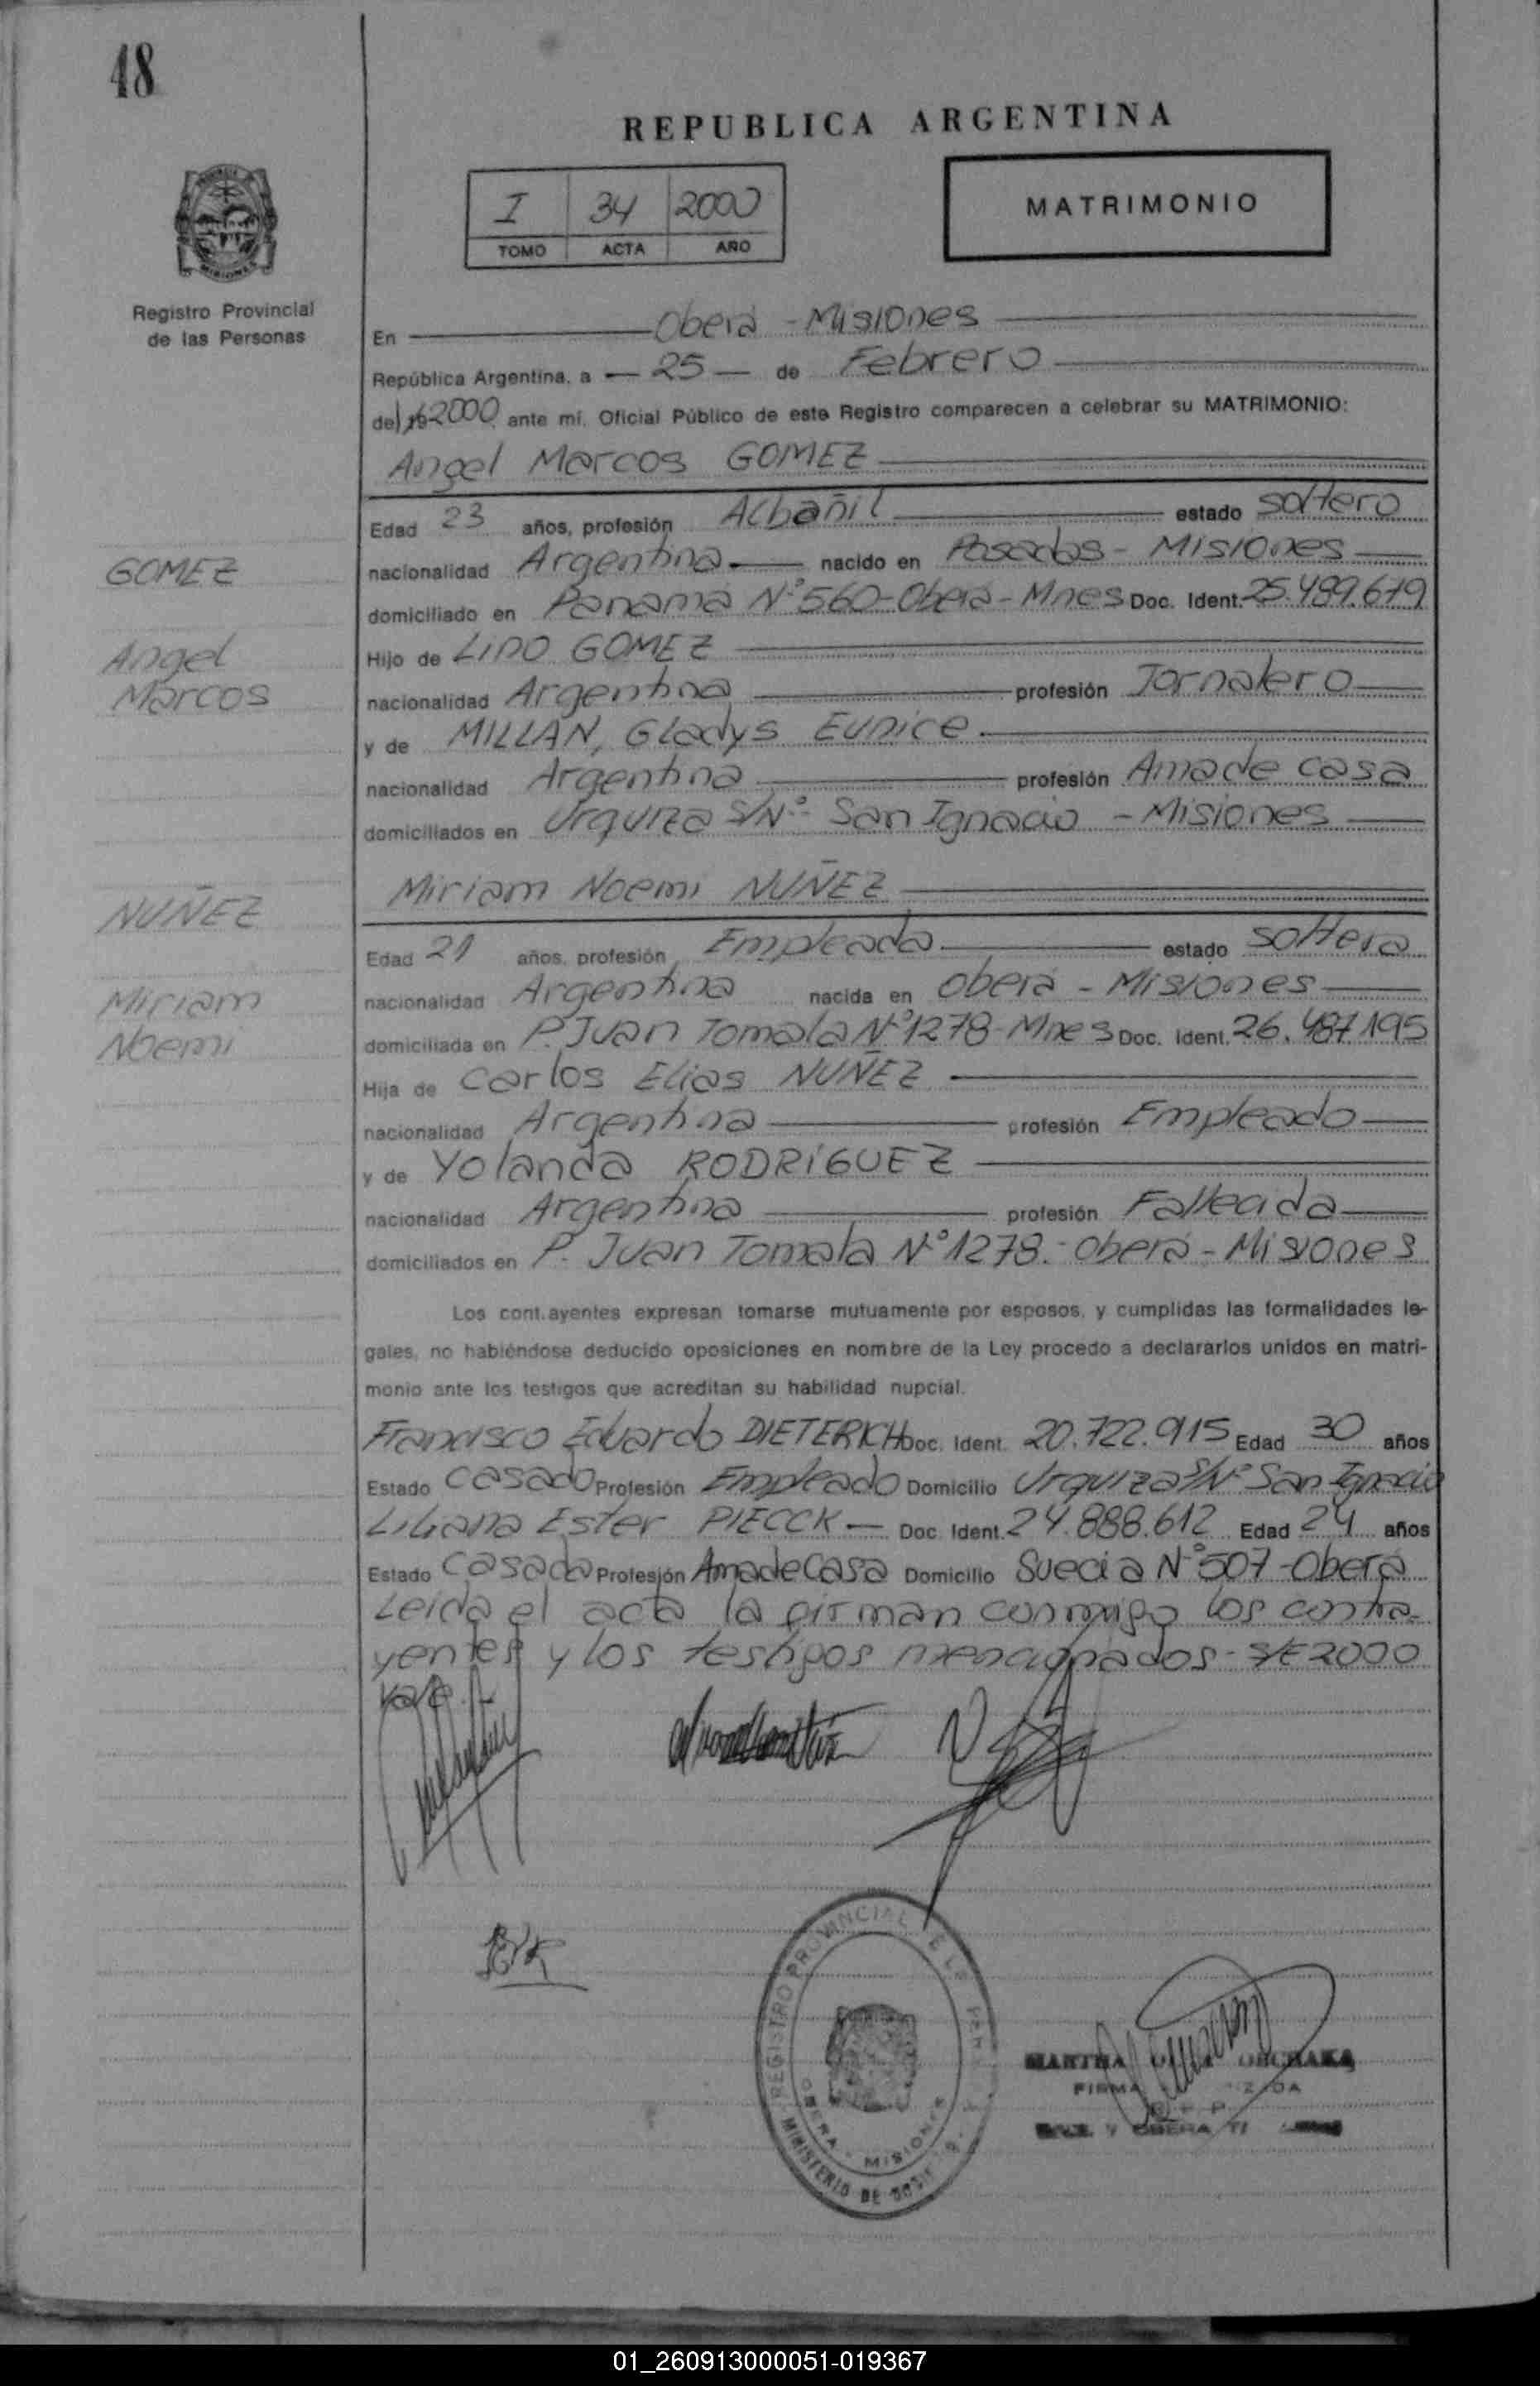 48
REPUBLICA ARGENTINA
I 34 2000
TOMO ACTA AÑO
MATRIMONIO
Registro Provincial
de las Personas
En Oberá - Misiones
República Argentina, a - 25 - de Febrero
del 19 2000 ante mí, Oficial Público de este Registro comparecen a celebrar su MATRIMONIO:
Angel Marcos GOMEZ
Edad 23 años, profesión Albañil estado soltero
GOMEZ
nacionalidad Argentina nacido en Posadas - Misiones
domiciliado en Panamá Nº 560 - Oberá - Mnes Doc. Ident. 25.489.679
Angel
Marcos
Hijo de LINO GOMEZ
nacionalidad Argentina profesión Jornalero
y de MILLAN, Gladys Eunice
nacionalidad Argentina profesión Ama de casa
domiciliados en Urquiza S/Nº - San Ignacio - Misiones
Miriam Noemi NUÑEZ
NUÑEZ
Edad 21 años, profesión Empleada estado soltera
Miriam
Noemi
nacionalidad Argentina nacida en Oberá - Misiones
domiciliada en P. Juan Tomala Nº 1278 - Mnes Doc. Ident. 26.487.195
Hija de Carlos Elias NUÑEZ
nacionalidad Argentina profesión Empleado
y de Yolanda RODRíGUEZ
nacionalidad Argentina profesión Fallecida
domiciliados en P. Juan Tomala Nº 1278.- Oberá - Misiones
Los cont.ayentes expresan tomarse mutuamente por esposos, y cumplidas las formalidades le-
gales, no habiéndose deducido oposiciones en nombre de la Ley procedo a declararlos unidos en matri-
monio ante los testigos que acreditan su habilidad nupcial.
Francisco Eduardo DIETERICH Doc. Ident. 20.722.915 Edad 30 años
Estado Casado Profesión Empleado Domicilio Urquiza S/Nº San Ignacio
Liliana Ester PIECCK - Doc. Ident. 24.888.612 Edad 24 años
Estado Casada Profesión Ama de Casa Domicilio Suecia Nº 507 - Oberá
Leida el acta la firman conmigo los contra-
yentes y los testigos mencionados - S/E 2000
Vale.-
REGISTRO PROVINCIAL DE LAS
OBERA - MISIONES
MINISTERIO DE
MARTHA
FIRMA
OBERA
01_260913000051-019367